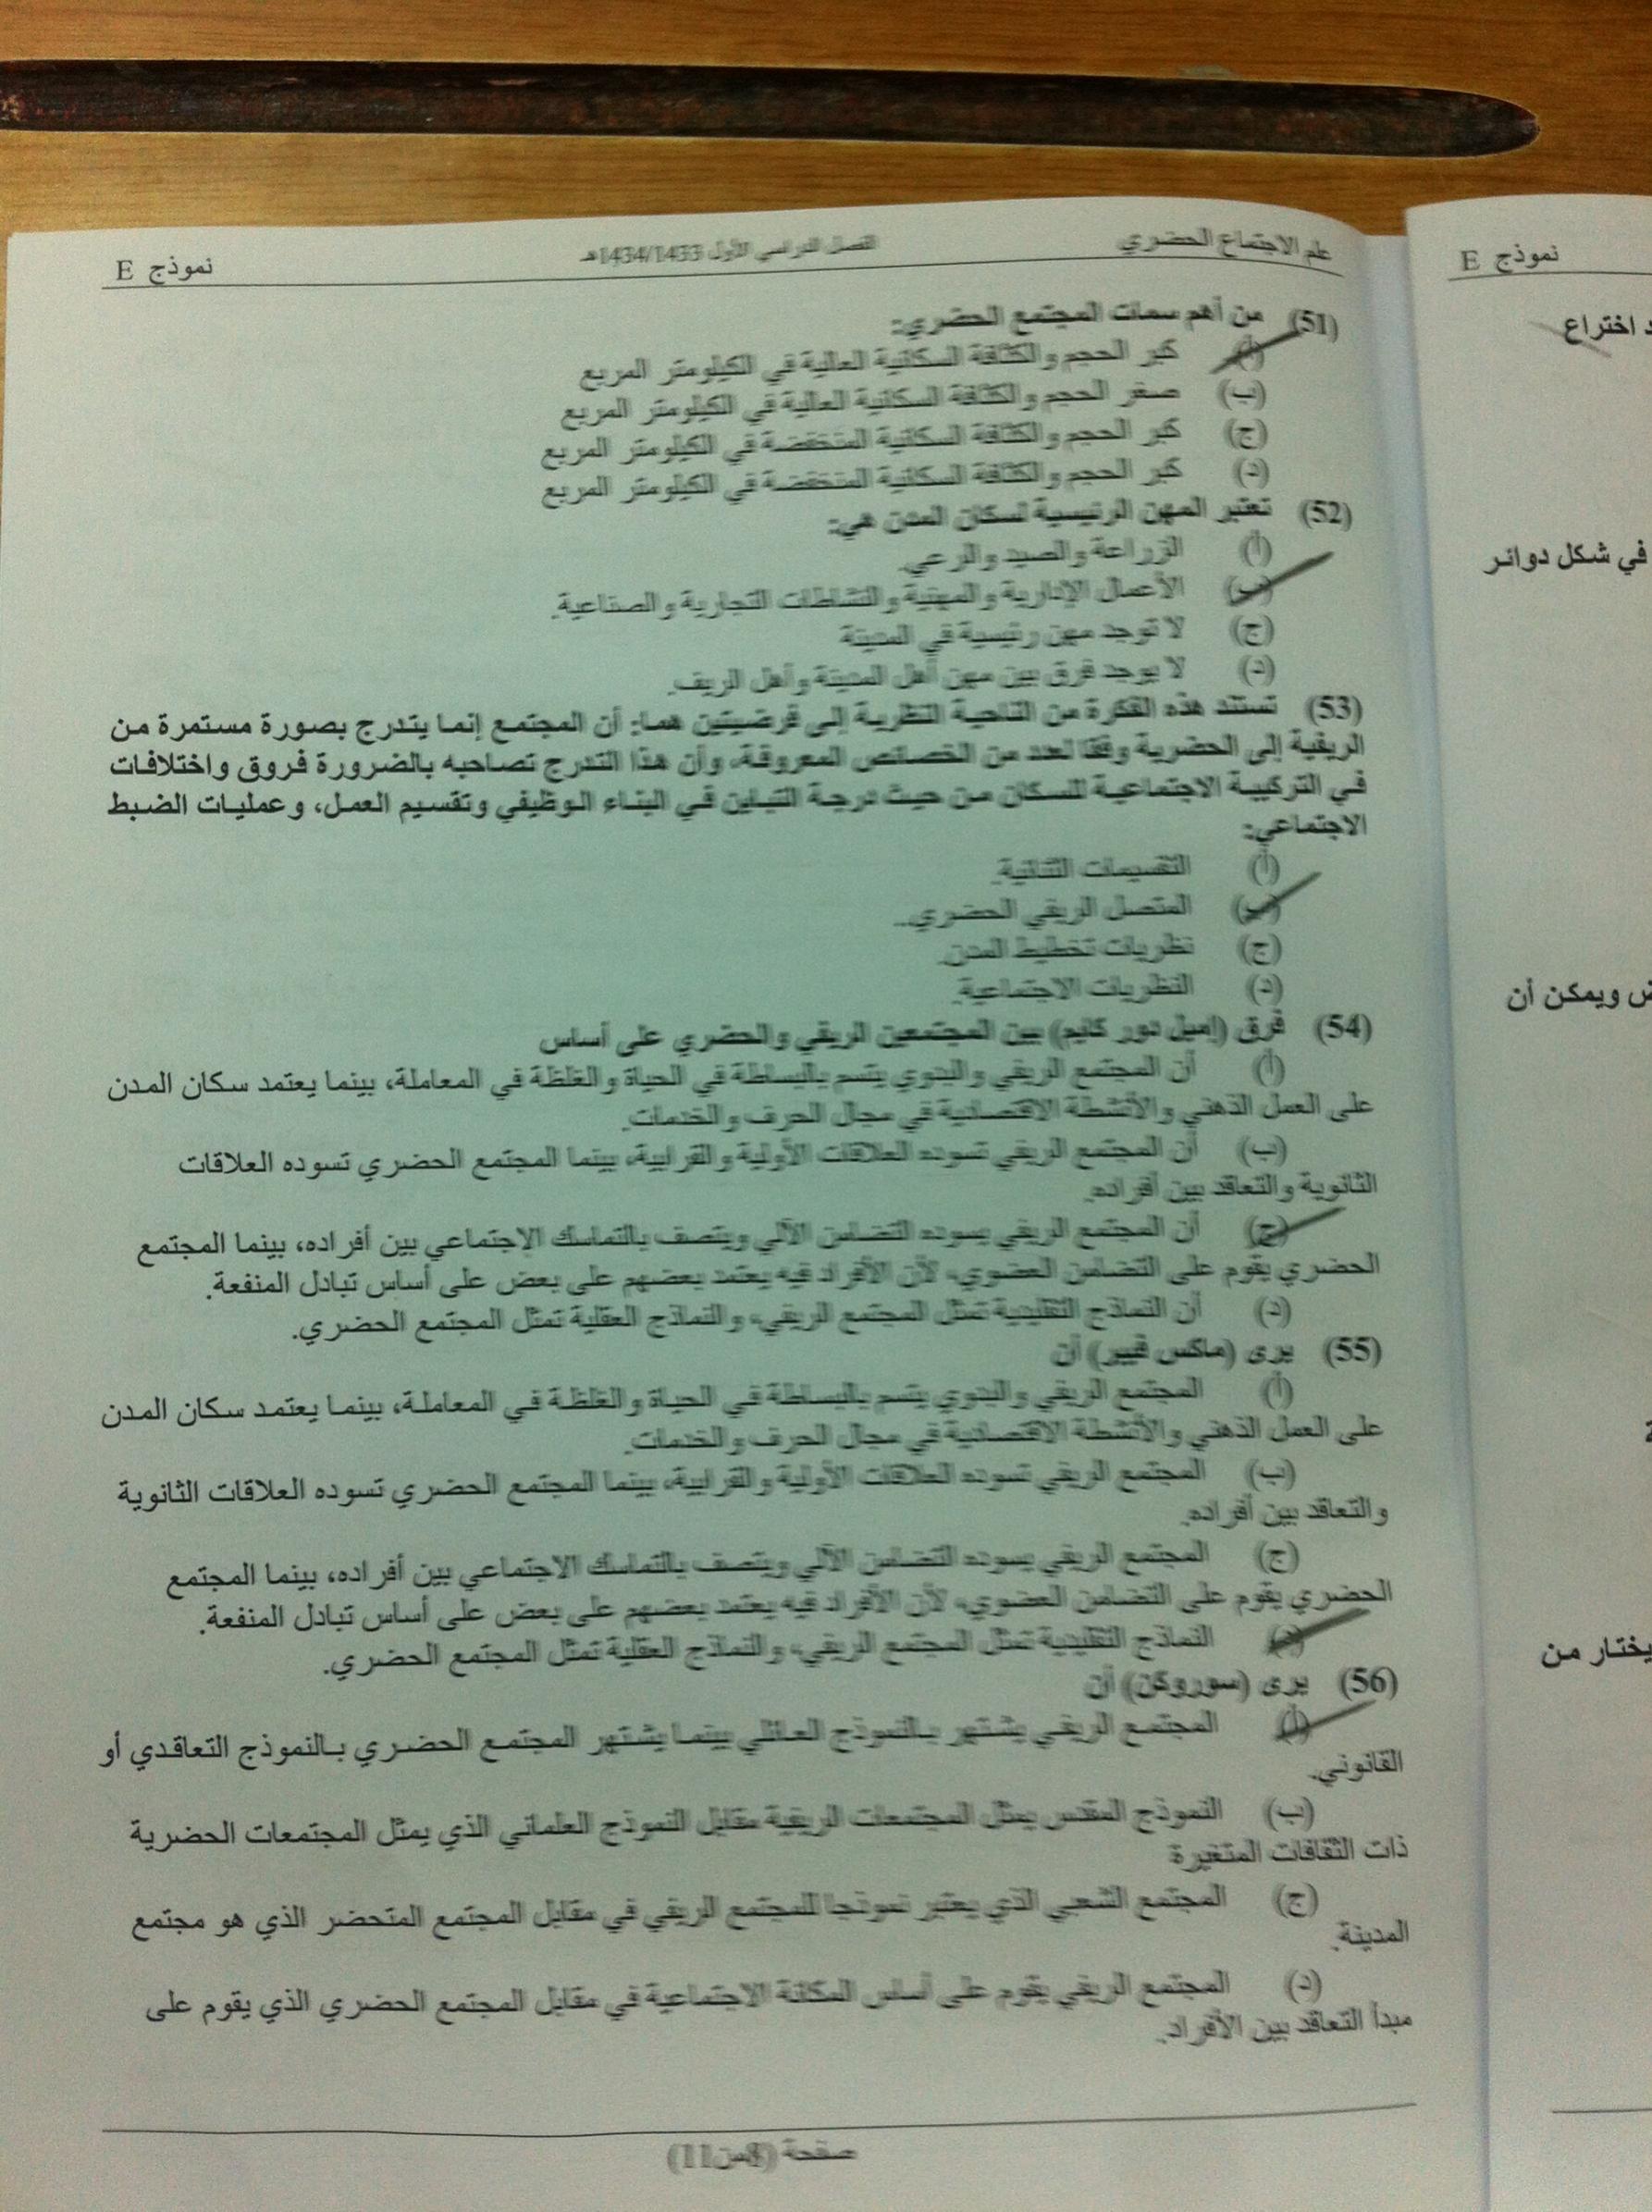 علم الاجتماع الحضري الفصل الدراسي الأول 1434/1433هـ نموذج E
(51) من أهم سمات المجتمع الحضري:
(أ) كبر الحجم والكثافة السكانية العالية في الكيلومتر المربع
(ب) صغر الحجم والكثافة السكانية العالية في الكيلومتر المربع
(ج) كبر الحجم والكثافة السكانية المنخفضة في الكيلومتر المربع
(د) كبر الحجم والكثافة السكانية المنخفضة في الكيلومتر المربع
(52) تعتبر المهن الرئيسية لسكان المدن هي:
(أ) الزراعة والصيد والرعي
(ب) الأعمال الإدارية والمهنية والنشاطات التجارية والصناعية.
(ج) لا توجد مهن رئيسية في المدينة
(د) لا يوجد فرق بين مهن أهل المدينة وأهل الريف.
(53) تستند هذه الفكرة من الناحية النظرية إلى فرضيتين هما: أن المجتمع إنما يتدرج بصورة مستمرة من
الريفية إلى الحضرية وفقا لعدد من الخصائص المعروفة، وأن هذا التدرج تصاحبه بالضرورة فروق واختلافات
في التركيبة الاجتماعية للسكان من حيث درجة التباين في البناء الوظيفي وتقسيم العمل، وعمليات الضبط
الاجتماعي:
(أ) التقسيمات الثنائية.
(ب) المتصل الريفي الحضري.
(ج) نظريات تخطيط المدن.
(د) النظريات الاجتماعية.
(54) فرق (إميل دور كايم) بين المجتمعين الريفي والحضري على أساس
(أ) أن المجتمع الريفي والبدوي يتسم بالبساطة في الحياة والغلظة في المعاملة، بينما يعتمد سكان المدن
على العمل الذهني والأنشطة الاقتصادية في مجال الحرف والخدمات.
(ب) أن المجتمع الريفي تسوده العلاقات الأولية والقرابية، بينما المجتمع الحضري تسوده العلاقات
الثانوية والتعاقد بين أفراده.
(ج) أن المجتمع الريفي يسوده التضامن الآلي ويتصف بالتماسك الاجتماعي بين أفراده، بينما المجتمع
الحضري يقوم على التضامن العضوي، لأن الأفراد فيه يعتمد بعضهم على بعض على أساس تبادل المنفعة.
(د) أن النماذج التقليدية تمثل المجتمع الريفي، والنماذج العقلية تمثل المجتمع الحضري.
(55) يرى (ماكس فيبر) أن
(أ) المجتمع الريفي والبدوي يتسم بالبساطة في الحياة والغلظة في المعاملة، بينما يعتمد سكان المدن
على العمل الذهني والأنشطة الاقتصادية في مجال الحرف والخدمات.
(ب) المجتمع الريفي تسوده العلاقات الأولية والقرابية، بينما المجتمع الحضري تسوده العلاقات الثانوية
والتعاقد بين أفراده.
(ج) المجتمع الريفي يسوده التضامن الآلي ويتصف بالتماسك الاجتماعي بين أفراده، بينما المجتمع
الحضري يقوم على التضامن العضوي، لأن الأفراد فيه يعتمد بعضهم على بعض على أساس تبادل المنفعة.
(د) النماذج التقليدية تمثل المجتمع الريفي، والنماذج العقلية تمثل المجتمع الحضري.
(56) يرى (سوروكن) أن
(أ) المجتمع الريفي يشتهر بالنموذج العائلي بينما يشتهر المجتمع الحضري بالنموذج التعاقدي أو
القانوني.
(ب) النموذج المقدس يمثل المجتمعات الريفية مقابل النموذج العلماني الذي يمثل المجتمعات الحضرية
ذات الثقافات المتغيرة
(ج) المجتمع الشعبي الذي يعتبر نموذجا للمجتمع الريفي في مقابل المجتمع المتحضر الذي هو مجتمع
المدينة.
(د) المجتمع الريفي يقوم على أساس المكانة الاجتماعية في مقابل المجتمع الحضري الذي يقوم على
مبدأ التعاقد بين الأفراد.
صفحة (8من11)
نموذج E
اختراع
في شكل دوائر
ويمكن أن
يختار من